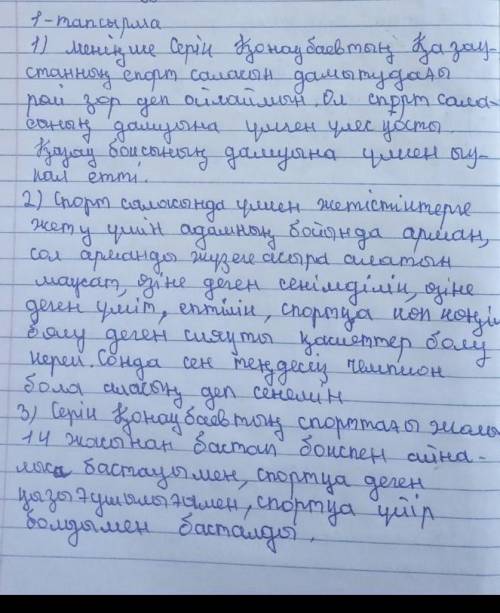 1-тапсырма
1) Меніңше Серік Қонақбаевтың Қазақ-
станның спорт саласын дамытудағы
рөлі зор деп ойлаймын. Ол спорт сала-
сының дамуына үлкен үлес қосты.
Қазақ боксының дамуына үлкен ық-
пал етті.
2) Спорт саласында үлкен жетістіктерге
жету үшін адамның бойында арман,
сол арманды жүзеге асыра алатын
мақсат, өзіне деген сенімділік, өзіне
деген үміт, ептілік, спортқа көп көңіл
бөлу деген сияқты қасиеттер болу
керек. Сонда сен теңдесіз чемпион
бола аласың деп сенемін
3) Серік Қонақбаевтың спорттағы жолы
14 жасынан бастап бокспен айна-
лыса бастауымен, спортқа деген
қызығушылығымен, спортқа үйір
болдымен басталды.